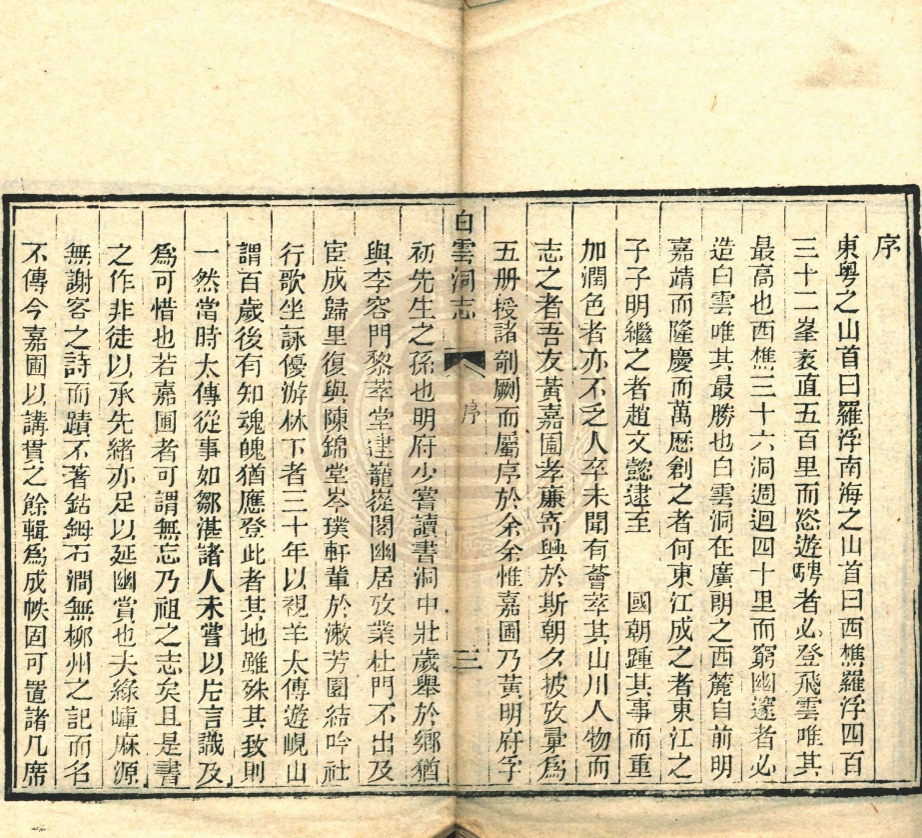 序
東粵之山首曰羅浮南海之山首曰西樵羅浮四百
三十二峯袤直五百里而恣遊騁者必登飛雲唯其
最高也西樵三十六洞週迴四十里而窮幽邃者必
造白雲唯其最勝也白雲洞在廣朗之西麓自前明
嘉靖而隆慶而萬歷創之者何東江成之者東江之
子子明繼之者趙文懿逮至 國朝踵其事而重
加潤色者亦不乏人卒未聞有薈萃其山川人物而
志之者吾友黃嘉圃孝廉寄興於斯朝夕披攷彚爲
五册授諸剞劂而屬序於余余惟嘉圃乃黃明府字
白雲洞志 序 三
初先生之孫也明府少嘗讀書洞中壯歲舉於鄉猶
與李容門黎萃堂建龍崧閣幽居攷業杜門不出及
宦成歸里復與陳錦堂岑璞軒輩於漱芳園結吟社
行歌坐詠優游林下者三十年以視羊太傅遊峴山
謂百歲後有知魂魄猶應登此者其地雖殊其致則
一然當時太傅從事如鄒湛諸人未嘗以片言識及
爲可惜也若嘉圃者可謂無忘乃祖之志矣且是書
之作非徒以承先緒亦足以延幽賞也夫綠嶂麻源
無謝客之詩而蹟不著鈷鉧石澗無柳州之記而名
不傳今嘉圃以講貫之餘輯爲成帙固可置諸几席